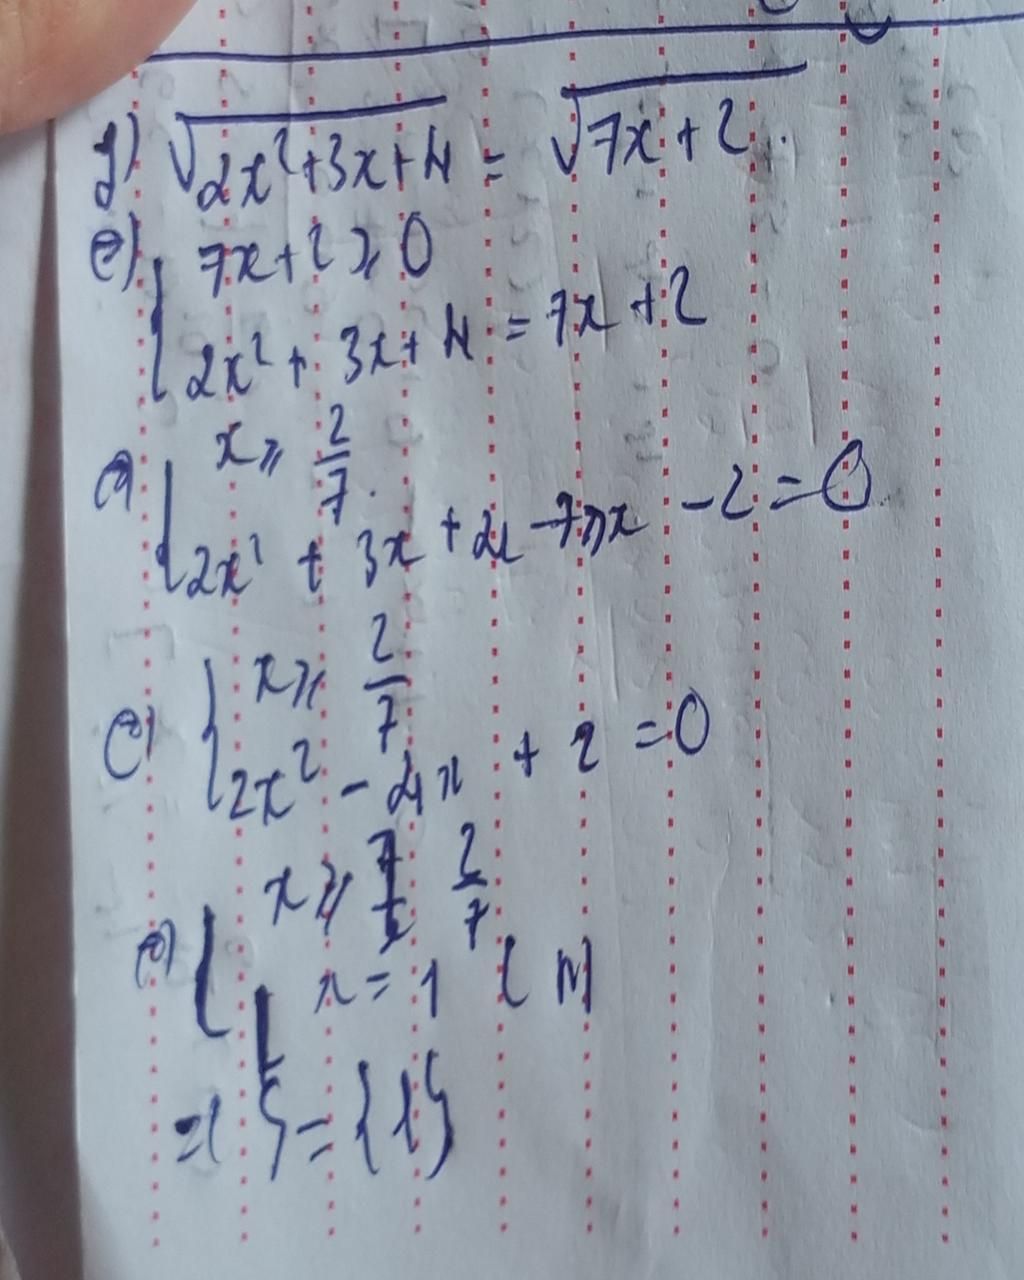 g) √(2x² + 3x + 4) = √(7x + 2).
⇔ { 7x + 2 ≥ 0
2x² + 3x + 4 = 7x + 2
⇔ { x ≥ 2/7.
2x² + 3x + 4 - 7x - 2 = 0
⇔ { x ≥ 2/7
2x² - 4x + 2 = 0
⇔ { x ≥ 2/7
x = 1 (N)
=) S = {1}